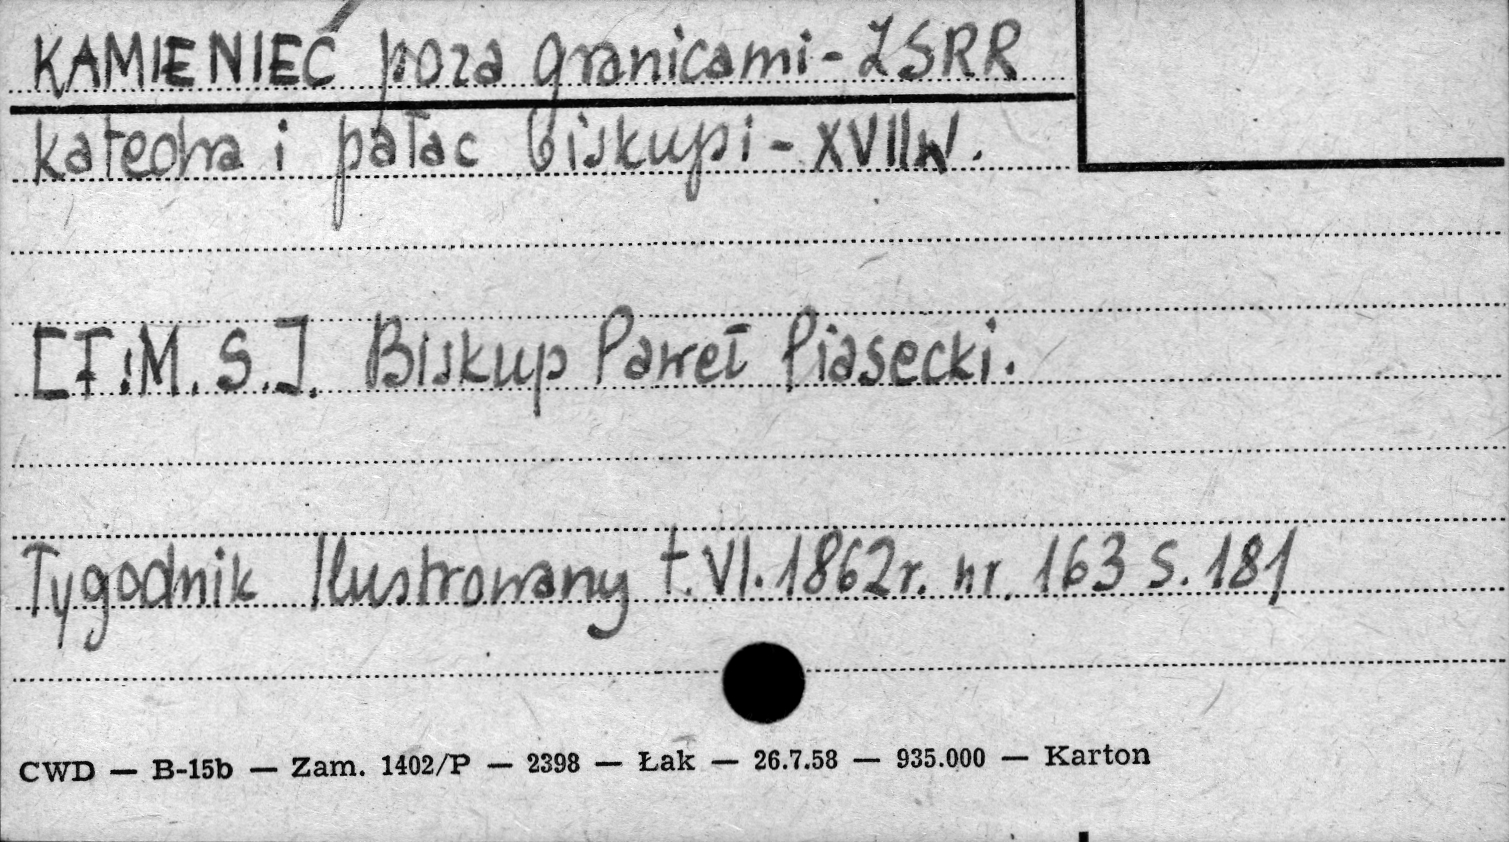 KAMIENIEC poza granicami - ZSRR
katedra i pałac biskupi - XVII w.
[F. M. S.]. Biskup Paweł Piasecki.
Tygodnik Ilustrowany t. VI. 1862 r. nr. 163 s. 181
CWD — B-15b — Zam. 1402/P — 2398 — Łak — 26.7.58 — 935.000 — Karton